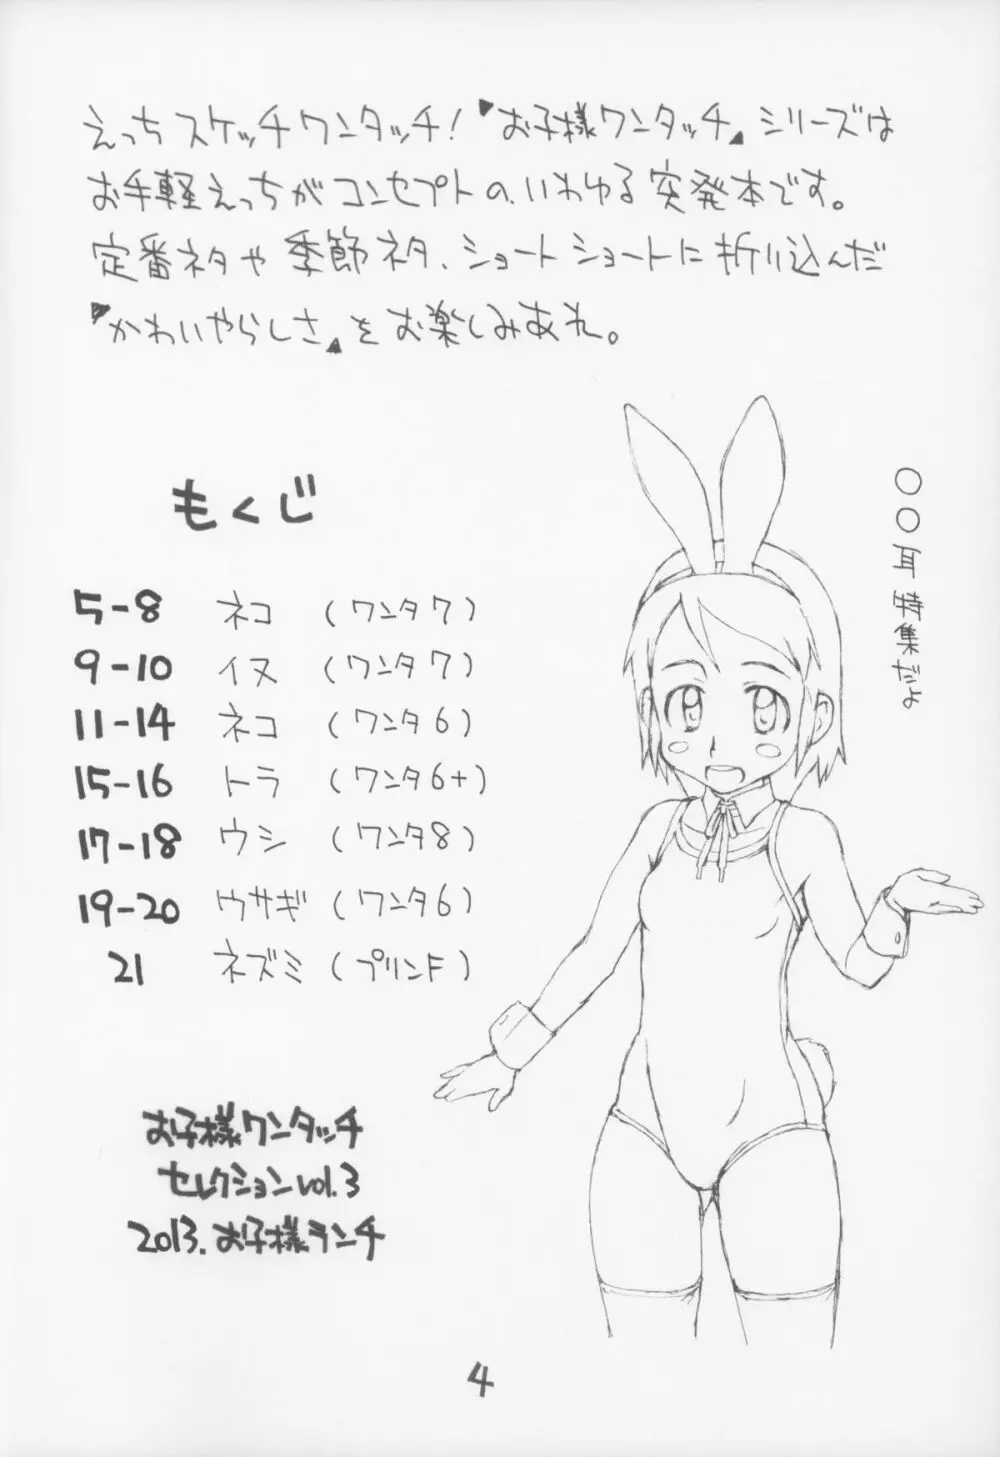 えっちスケッチワンタッチ!『お子様ワンタッチ』シリーズは
お手軽えっちがコンセプトの、いわゆる突発本です。
定番ネタや季節ネタ、ショートショートに折り込んだ
『かわいやらしさ』をお楽しみあれ。
○○耳特集だよ
もくじ
5-8 ネコ (ワンタ7)
9-10 イヌ (ワンタ7)
11-14 ネコ (ワンタ6)
15-16 トラ (ワンタ6+)
17-18 ウシ (ワンタ8)
19-20 ウサギ (ワンタ6)
21 ネズミ (プリンF)
お子様ワンタッチ
セレクションvol.3
2013.お子様ランチ
4